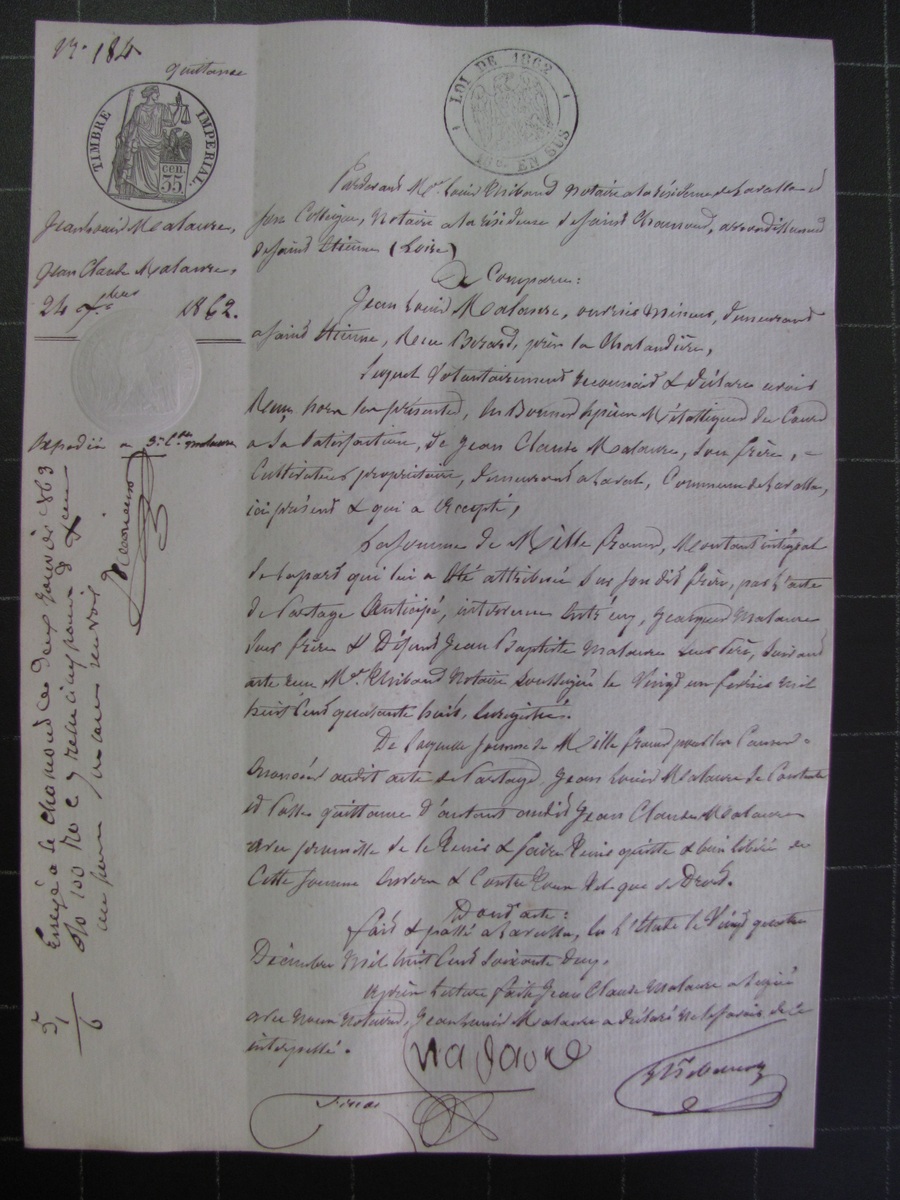 N.° 184
quittance
TIMBRE IMPERIAL
35 cen.
LOI DE 1862
EN SUS
Jean Louis Malaure,
Jean Claude Malaure.
24 Xbre 1862.
Expédié en
Pardevant Me. Louis Thibaud Notaire à la résidence de Lavalla et
Jean Notaire à la résidence de Saint Chamond, arrondissement
de Saint Etienne (Loire)
Comparu:
Jean Louis Malaure, ouvrier mineur, demeurant
à Saint Etienne, Rue Berard, près la Chalandière,
Lequel Volontairement reconnait & déclare avoir
Reçu hors leur présence, en Bonnes Espèces Métalliques du Cours
à sa Satisfaction, de Jean Claude Malaure, son frère,
Cultivateur propriétaire, demeurant à Commune de Lavalla,
ici présent & qui a accepté,
La Somme de Mille francs, Montant intégral
de la part qui lui a été attribuée sur son dit frère, par l'acte
de Partage Anticipé, intervenu entr'eux, Jacques Malaure
leur frère & Défunt Jean Baptiste Malaure leur Père, suivant
acte reçu Me. Thibaud Notaire Soussigné le Vingt un février mil
huit Cent quarante huit, Enregistré.
De laquelle Somme de Mille francs pour les Causes
énoncées audit acte de Partage, Jean Louis Malaure se Contente
et Passe quittance d'autant audit Jean Claude Malaure
avec promesse de le tenir & faire tenir quitte & bien libéré de
Cette Somme Envers & Contre tous tel que de Droit.
Dont acte:
fait & passé à Lavalla, en l'Etude le Vingt quatre
Décembre Mil huit Cent Soixante Deux.
Après Lecture faite Jean Claude Malaure a Signé
avec nous Notaires, Jean Louis Malaure a déclaré ne le savoir de ce
interpellé.
Malaure
Enregé à St Chamond le deux janvier 1863
reçu cinq francs
un franc sans renvoi
5
1
6